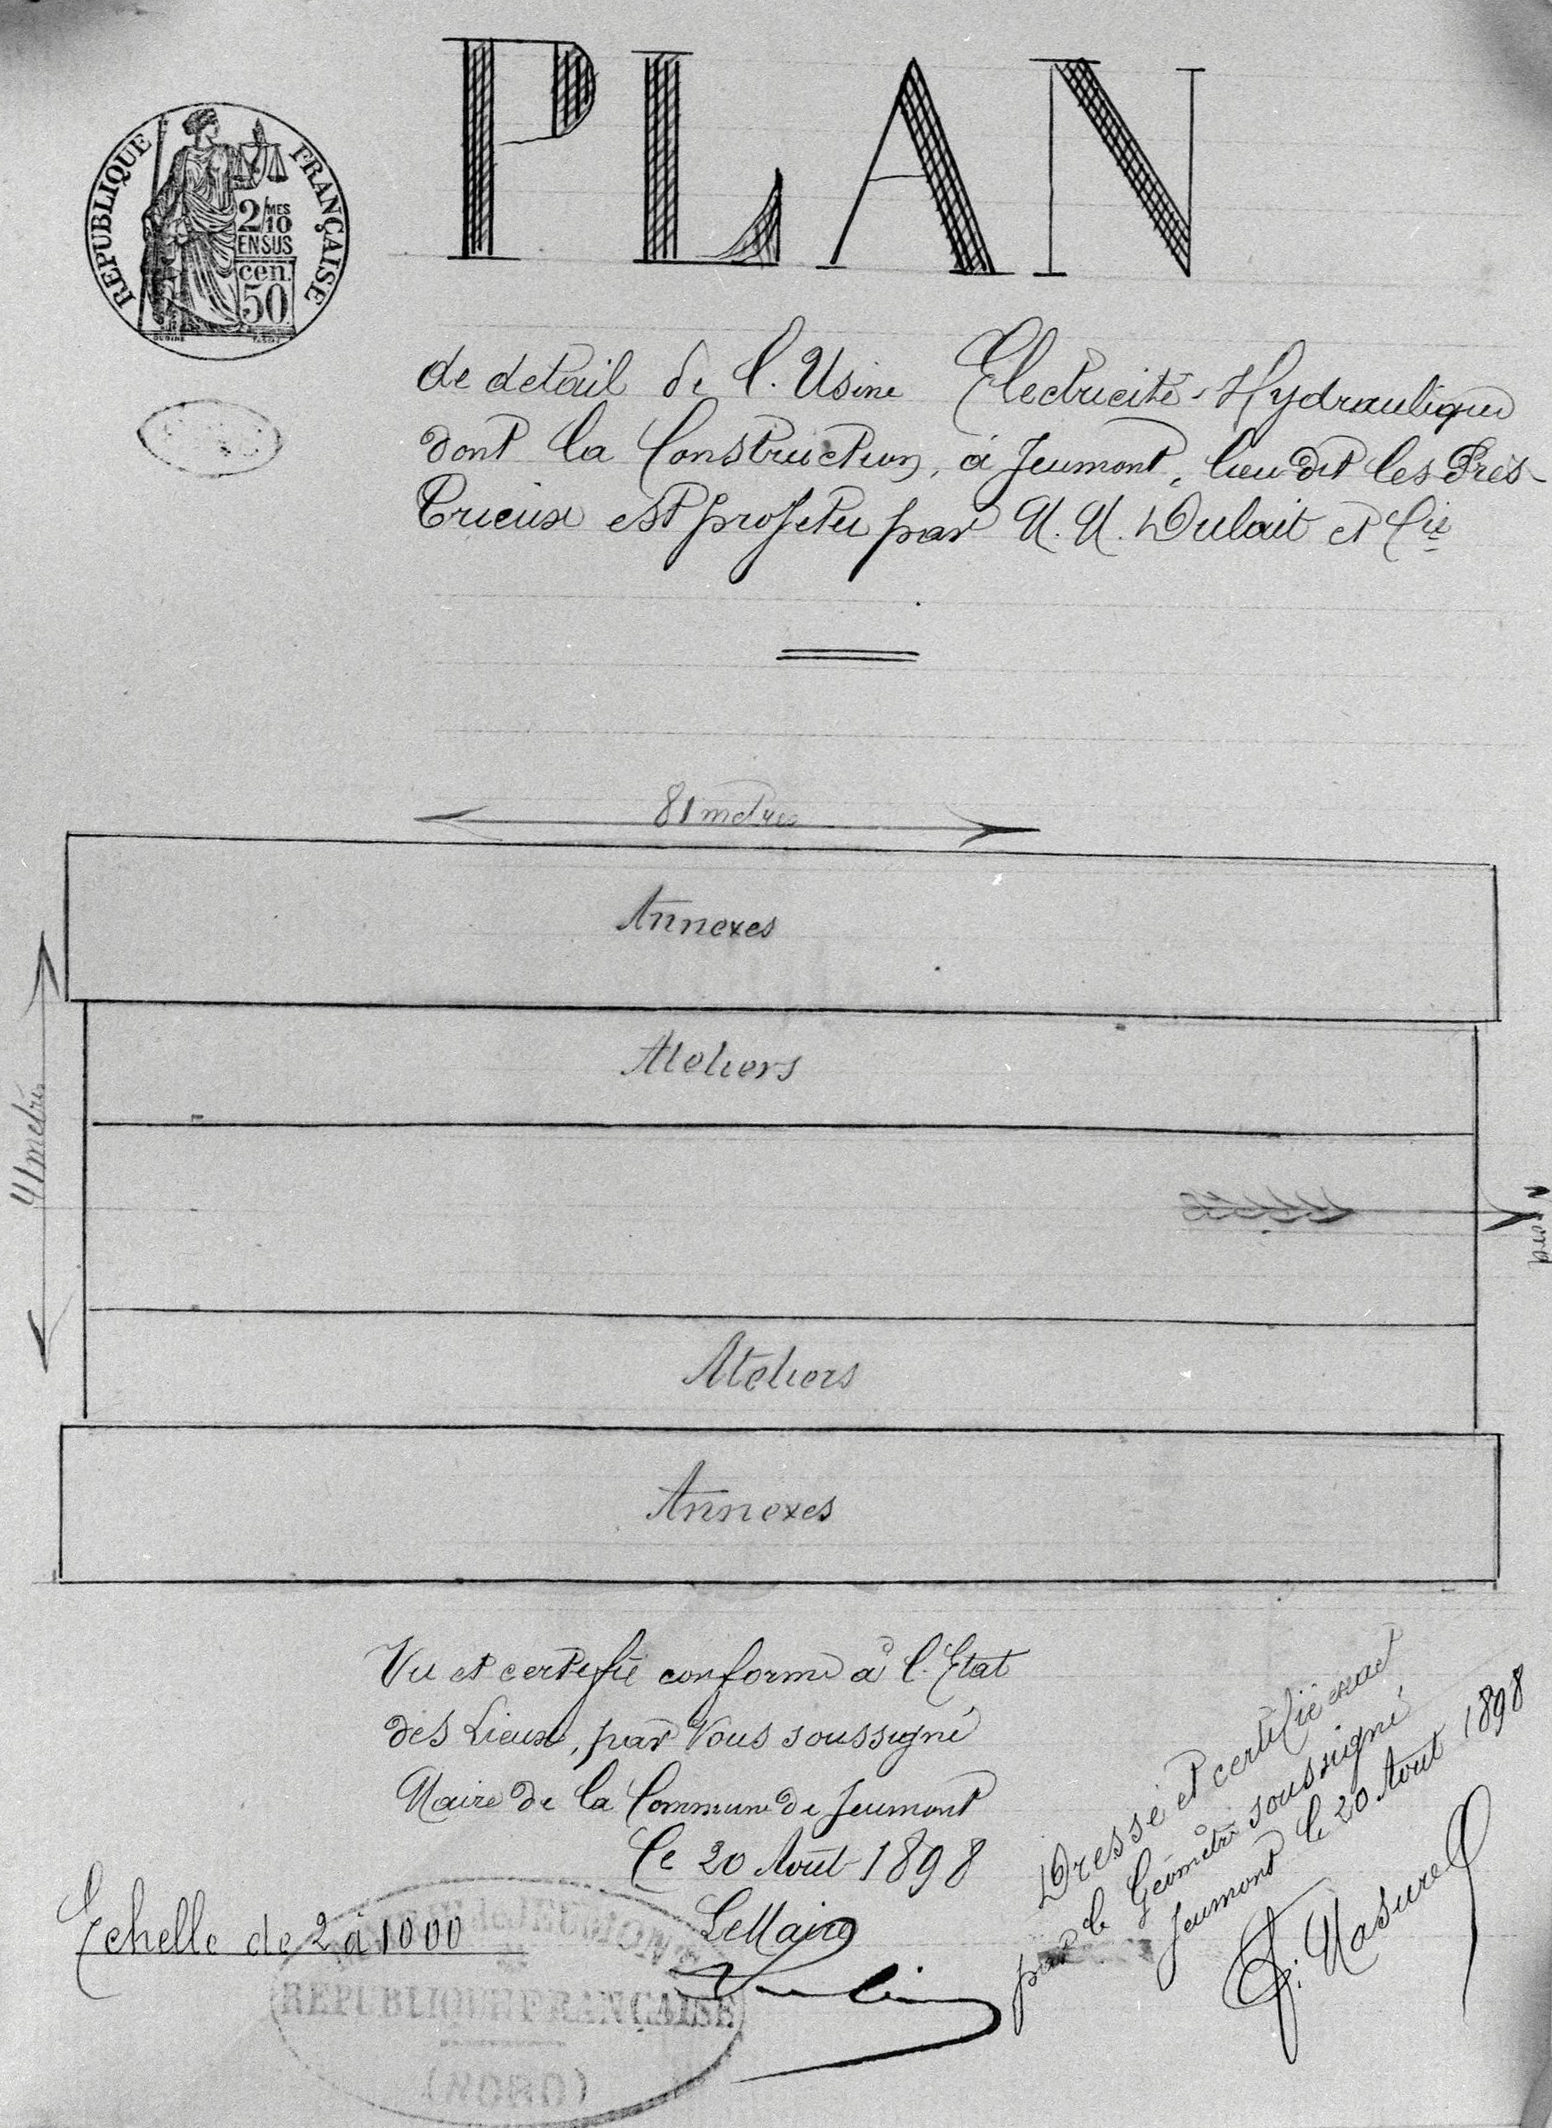 PLAN
RÉPUBLIQUE FRANÇAISE
2/10 MES
EN SUS
cen.
50
de detail de l'Usine Electricité-Hydraulique
dont la Construction, à Jeumont, lieu dit les Près
Trieux est projetée par M.M. Dulait et Cie
81 metres
Annexes
Ateliers
41 metres
Nord
Ateliers
Annexes
Vu et certifié conforme à l'Etat
des Lieux, par Nous soussigné
Maire de la Commune de Jeumont
Le 20 Août 1898
Le Maire
Dressé et certifié exact
par le Géomètre soussigné
Jeumont le 20 Aout 1898
Masurel
Echelle de 2 à 1000
de JEUMONT
REPUBLIQUE FRANÇAISE
(NORD)